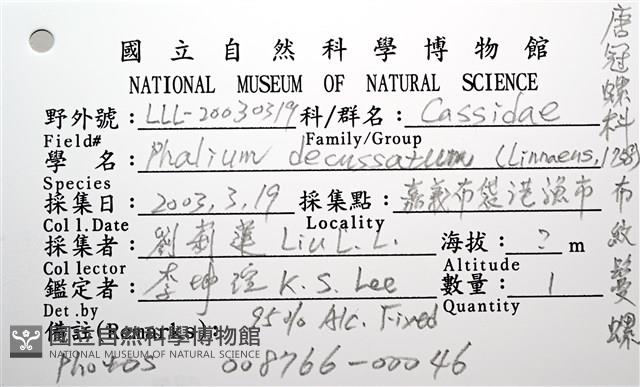 國立自然科學博物館
NATIONAL MUSEUM OF NATURAL SCIENCE
野外號：LLL-20030319 科/群名：Cassidae
Field# Family/Group
學名：Phalium decussatum (Linnaeus, 1758)
Species
採集日：2003, 3, 19 採集點：嘉義布袋港漁市
Col l.Date Locality
採集者：劉莉蓮 Liu L. L. 海拔：? m
Col lector Altitude
鑑定者：李坤瑄 K. S. Lee 數量：1
Det.by Quantity
備註(Remarks)：95% Alc. Fixed
Photos 008766-00046
唐冠螺科 布紋鬘螺
國立自然科學博物館
NATIONAL MUSEUM OF NATURAL SCIENCE